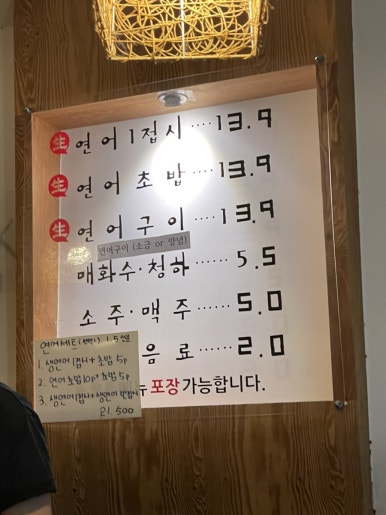 生 연어 1접시 ···· 13.9
生 연어 초밥 ···· 13.9
生 연어구이 ···· 13.9
연어구이 (소금 or 양념)
매화수·청하 ····· 5.5
소주·맥주 ····· 5.0
음료 ····· 2.0
포장 가능합니다.
연어세트
1. 생연어1접시+초밥 5p
2. 연어초밥10p+초밥 5p
3. 생연어1접시+생연어
21.500